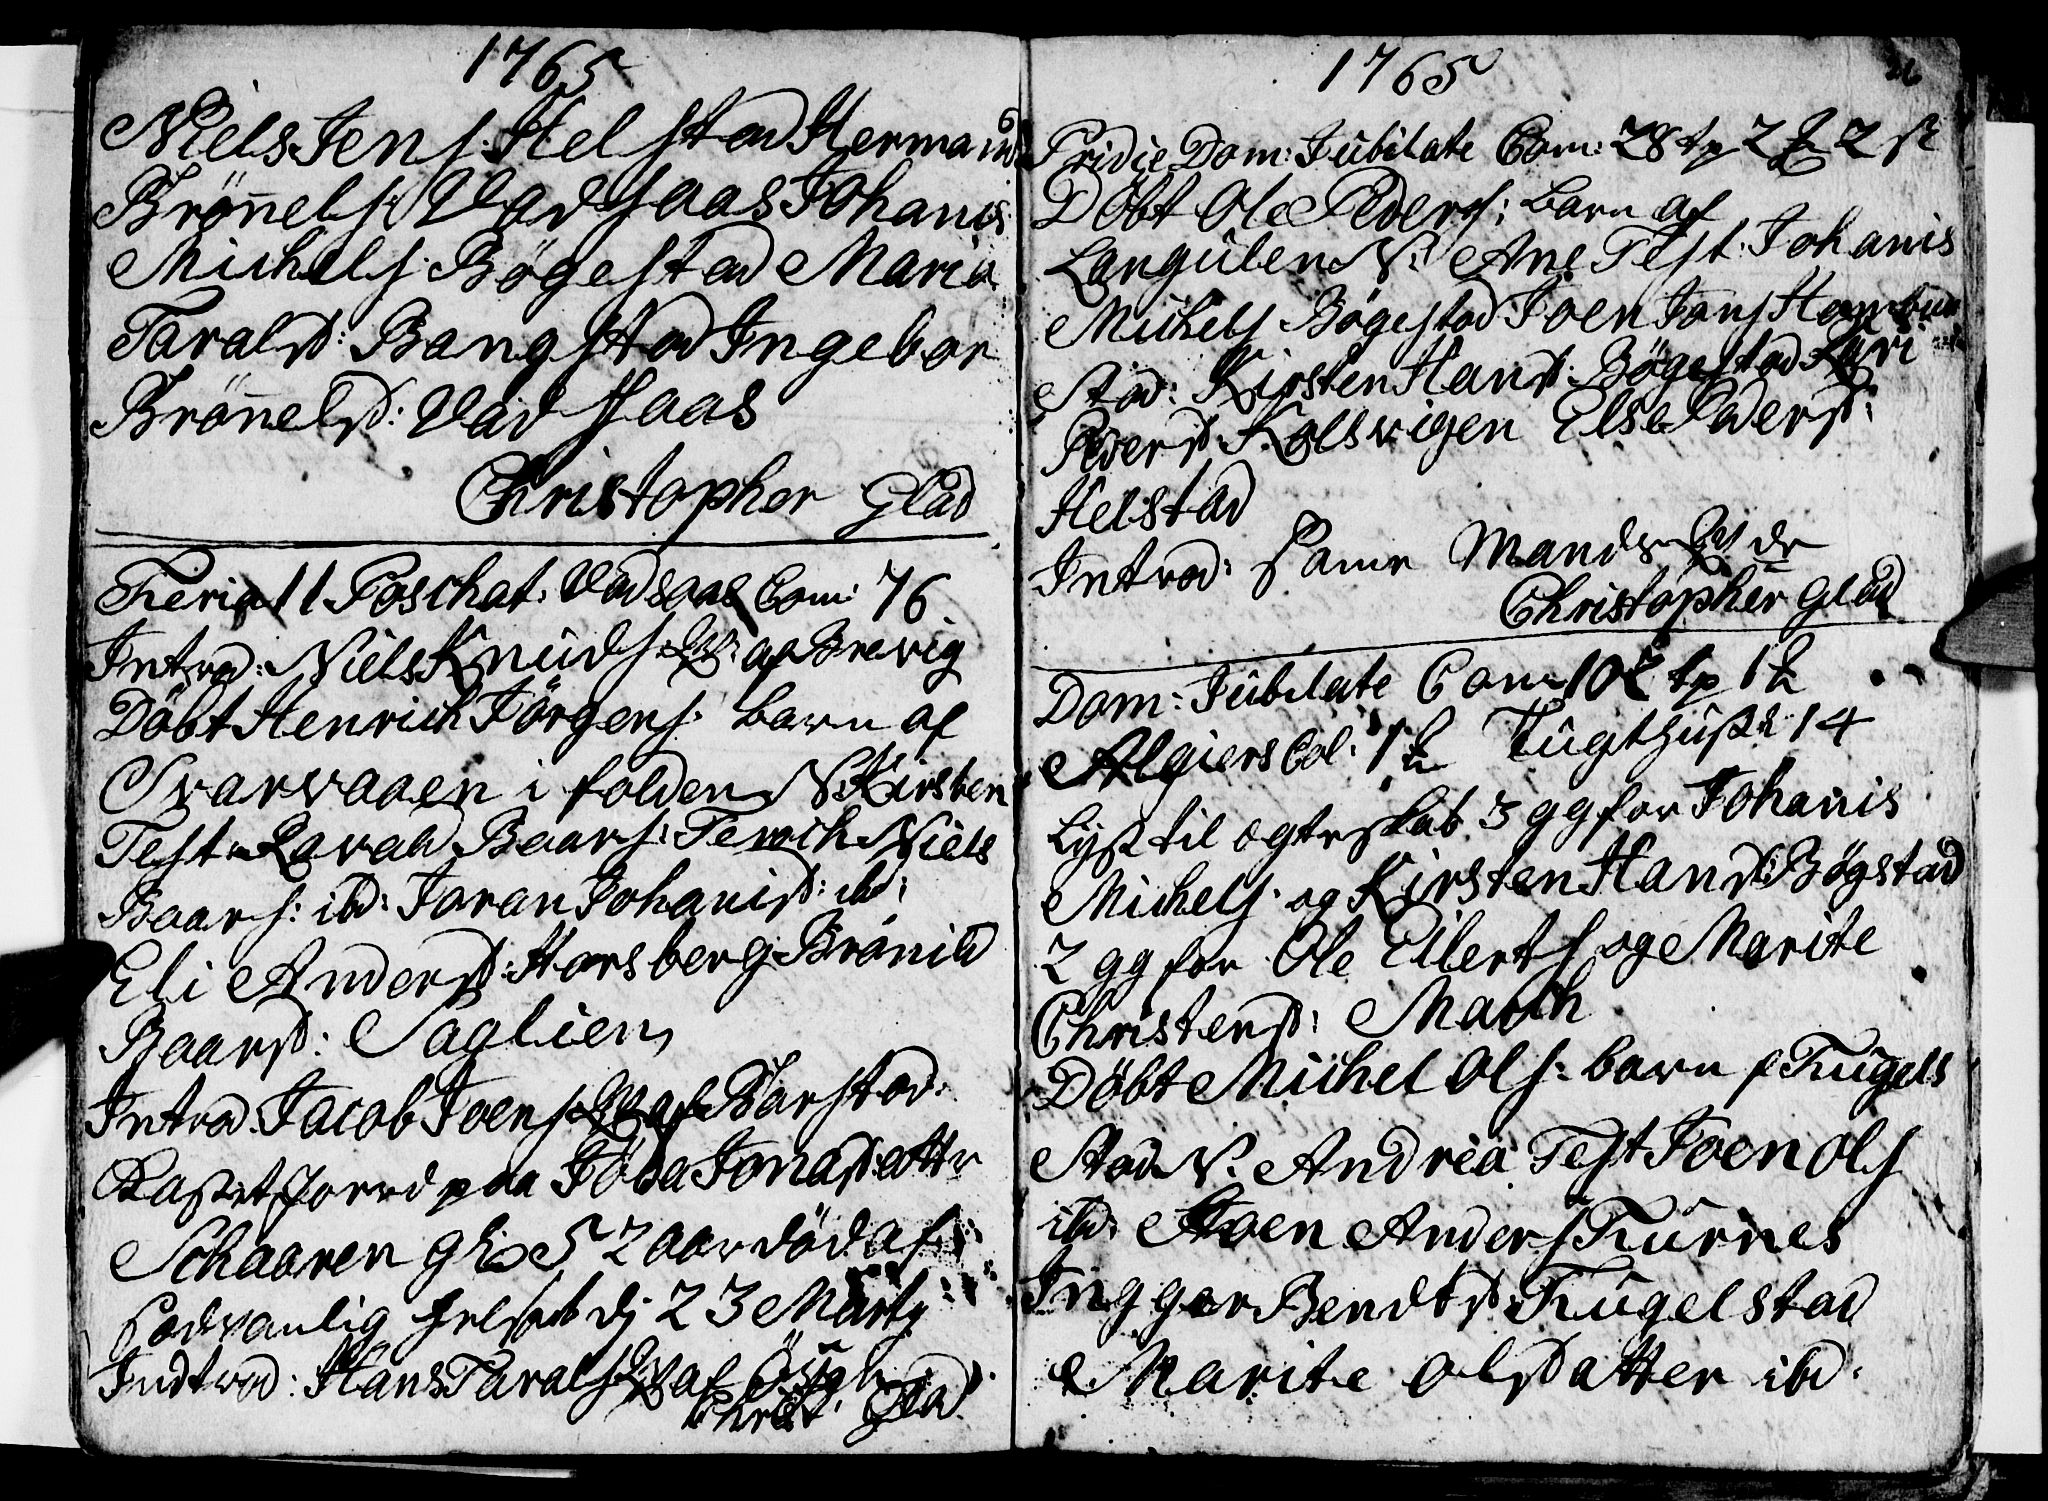 1765
Niels Jens: Helstad Herman
Brönnels: Vadsaas Johanis
Michels: Bögestad Maria
Taralsd: Bangstad Ingebor
Brönnelsd: Vadsaas
Christopher Glad
Feria 11 Paschat: Vadsaas Com: 76
Introd: Niels Knuds: af Brevig
Döbt Henrich Jörgens: barn af
Svarvaaen i folden N. Kirsten
Test: Baars: Niels
Baars: ibd: Joran Johanisd: ibd:
Eli Andersd: Horsberg Brönild
Baarsd: Saglien
Introd: Jacob Joens: af Barstad:
Kastet Jord paa Jonasdatter
Schaaren 52 aar död af
sædvanlig d: 23 Marty
Indtrod: Hans Tarals: af
Christ: Glad
1765
Pridie Dom: Jubilate Com: 28 tp 2 2 s
Döbt Ole Peders: barn af
Langulen N: Ane Test: Johanis
Michels Bögestad Joen Jans
stad: Kirsten Hansd: Bögestad Kari
Pedersd: Kolsvigen Else Pedersd:
Helstad
Introd: samme Mands
Christopher Glad
Dom: Jubilate Com: tp 1
Algiers Col: 1 Tugthuset 14
Lyst til ægteskab 3 gg for Johanis
Michels: og Kirsten Hansd: Bögstad
2 gg for Ole Eilerts og Marite
Christensd: March
Döbt Michel Ols: barn f Fugels
stad N. Andrea Test Joen Ols
ibd: Joen Anders Furnes
Ingger Bendtsd: Fugelstad
Marite Olsdatter ibd: